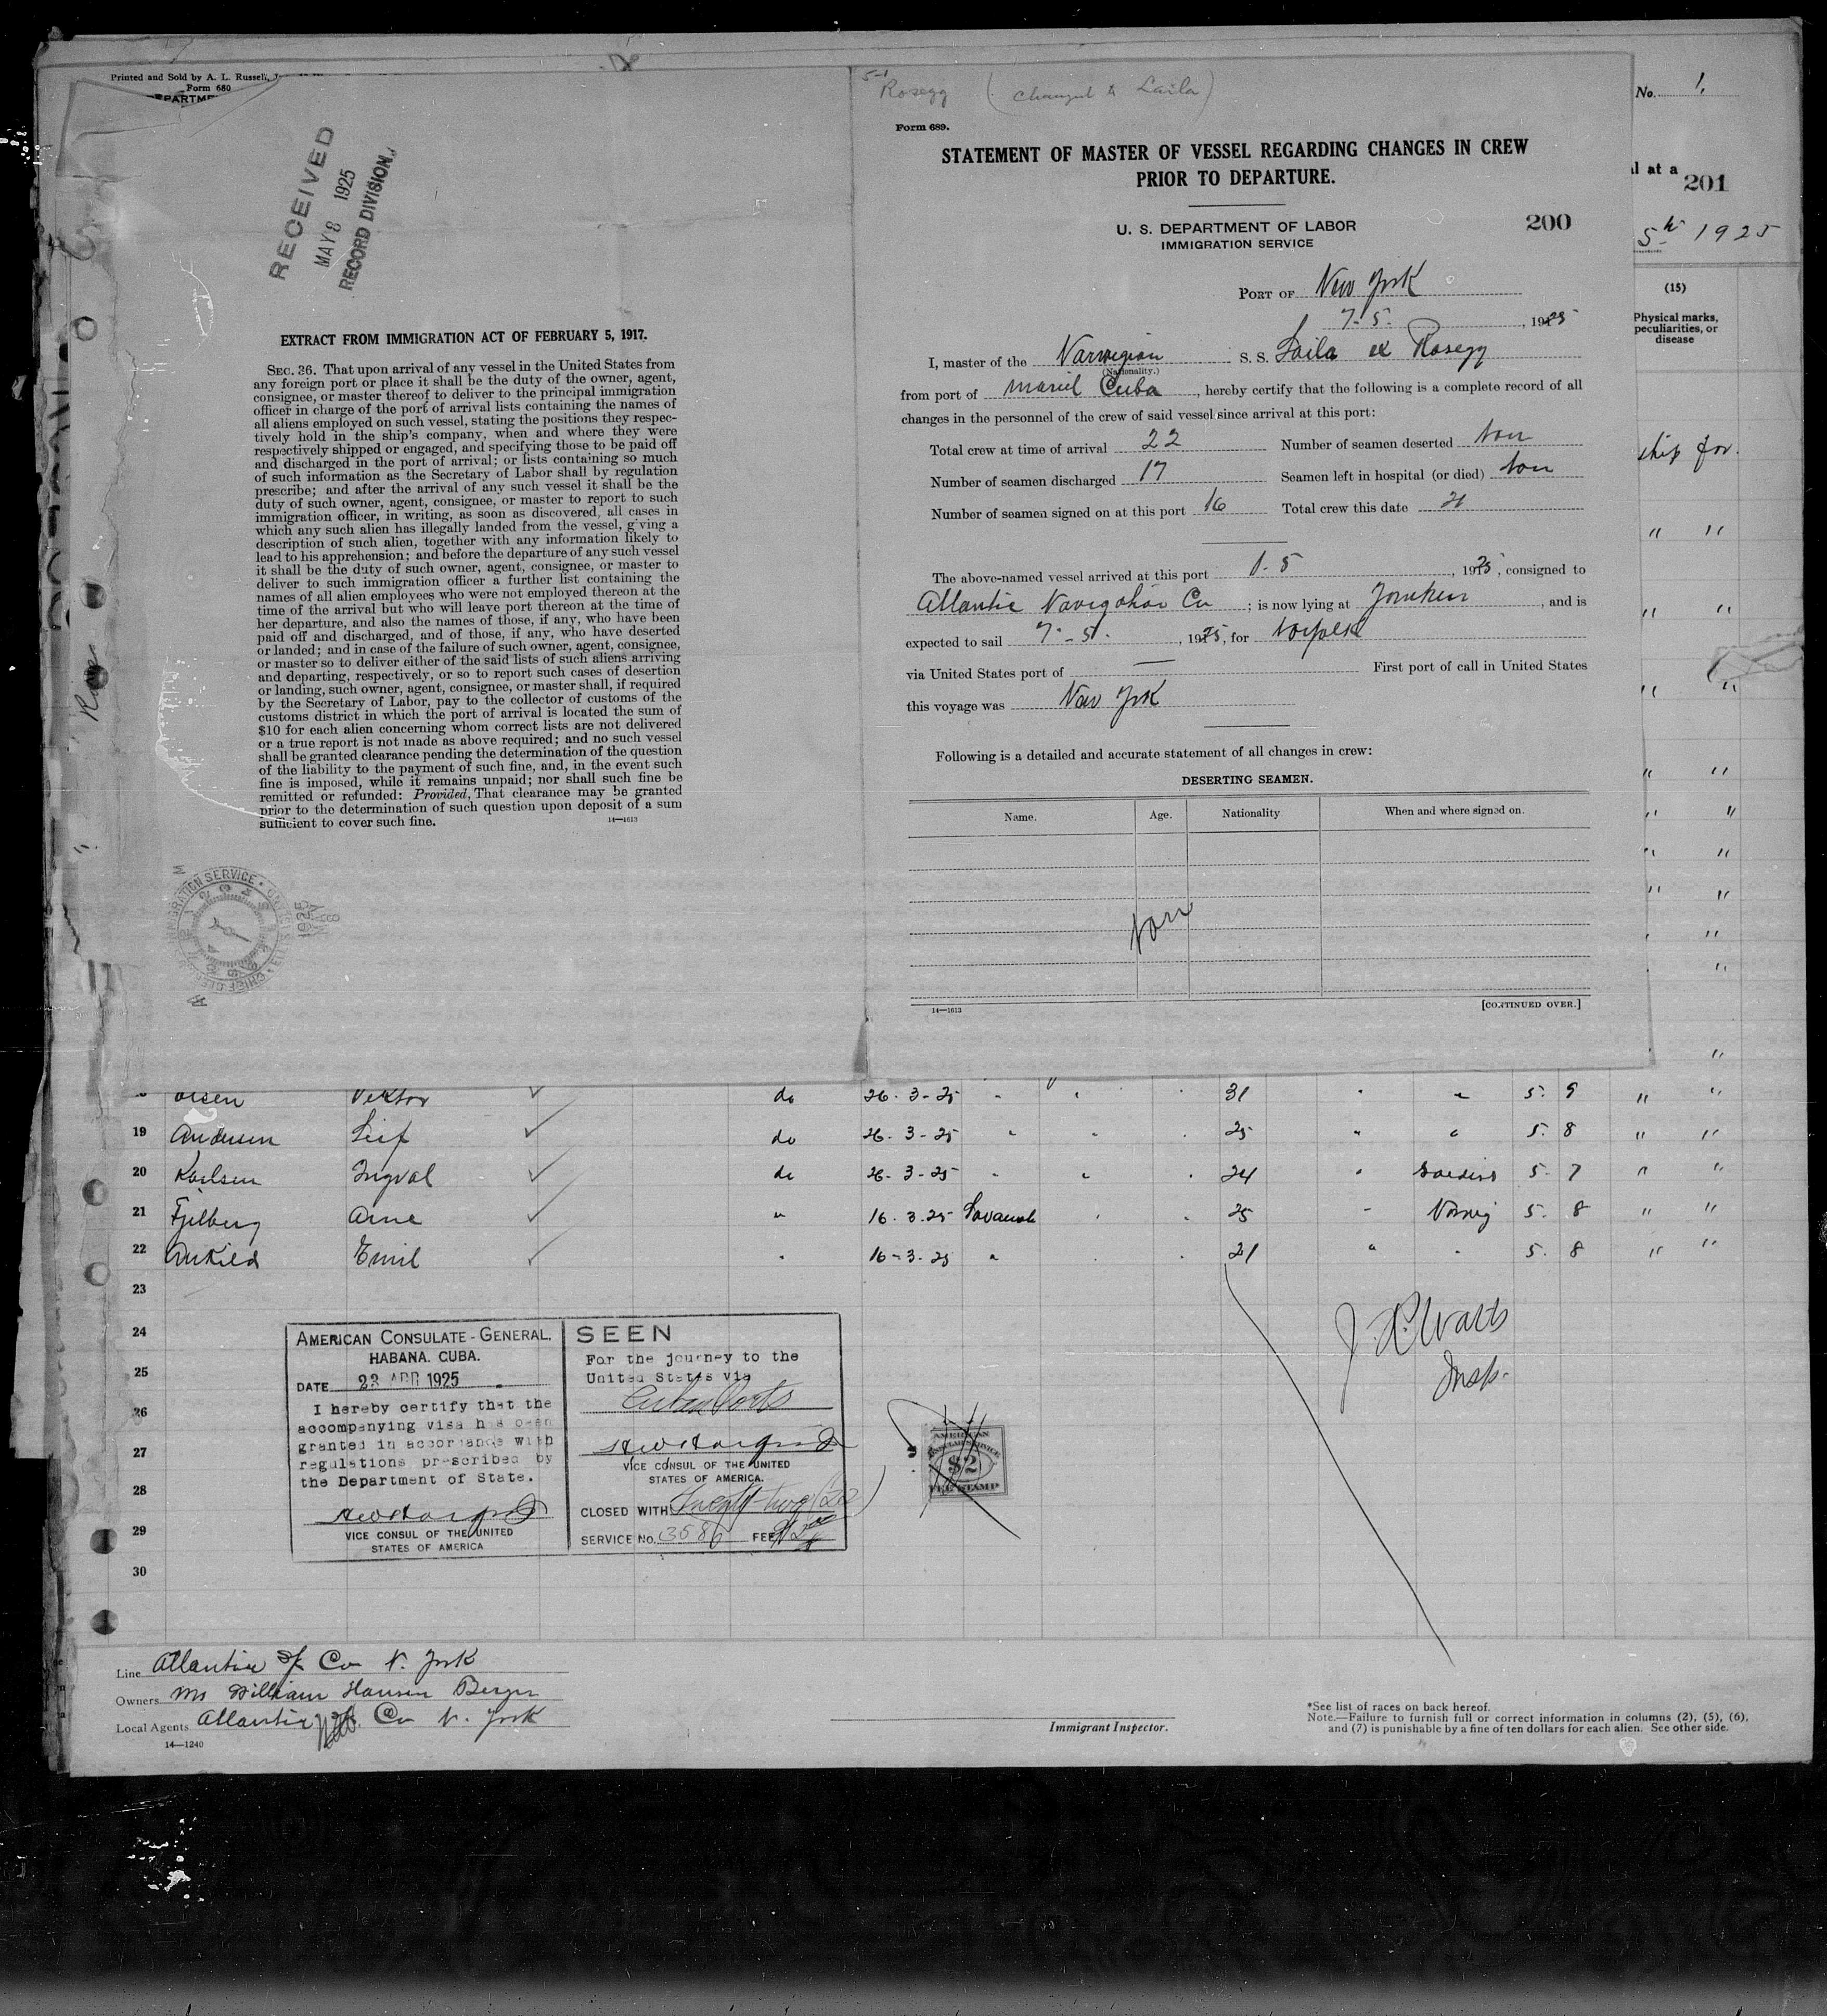 Printed and Sold by A. L. Russell,
Form 680
RECEIVED
MAY 8 1925
RECORD DIVISION
EXTRACT FROM IMMIGRATION ACT OF FEBRUARY 5, 1917.
SEC. 36. That upon arrival of any vessel in the United States from
any foreign port or place it shall be the duty of the owner, agent,
consignee, or master thereof to deliver to the principal immigration
officer in charge of the port of arrival lists containing the names of
all aliens employed on such vessel, stating the positions they respec-
tively hold in the ship's company, when and where they were
respectively shipped or engaged, and specifying those to be paid off
and discharged in the port of arrival; or lists containing so much
of such information as the Secretary of Labor shall by regulation
prescribe; and after the arrival of any such vessel it shall be the
duty of such owner, agent, consignee, or master to report to such
immigration officer, in writing, as soon as discovered, all cases in
which any such alien has illegally landed from the vessel, giving a
description of such alien, together with any information likely to
lead to his apprehension; and before the departure of any such vessel
it shall be the duty of such owner, agent, consignee, or master to
deliver to such immigration officer a further list containing the
names of all alien employees who were not employed thereon at the
time of the arrival but who will leave port thereon at the time of
her departure, and also the names of those, if any, who have been
paid off and discharged, and of those, if any, who have deserted
or landed; and in case of the failure of such owner, agent, consignee,
or master so to deliver either of the said lists of such aliens arriving
and departing, respectively, or so to report such cases of desertion
or landing, such owner, agent, consignee, or master shall, if required
by the Secretary of Labor, pay to the collector of customs of the
customs district in which the port of arrival is located the sum of
$10 for each alien concerning whom correct lists are not delivered
or a true report is not made as above required; and no such vessel
shall be granted clearance pending the determination of the question
of the liability to the payment of such fine, and, in the event such
fine is imposed, while it remains unpaid; nor shall such fine be
remitted or refunded: Provided, That clearance may be granted
prior to the determination of such question upon deposit of a sum
sufficient to cover such fine.
14—1613
IMMIGRATION SERVICE
CHIEF CLERK
1925 MAY 8
Rosegg (Changed to Laila)
Form 689.
STATEMENT OF MASTER OF VESSEL REGARDING CHANGES IN CREW
PRIOR TO DEPARTURE.
U. S. DEPARTMENT OF LABOR
IMMIGRATION SERVICE
200
PORT OF New York
7-5. , 1925
I, master of the Norwegian S. S. Laila ex Rosegg
(Nationality.)
from port of Mariel Cuba, hereby certify that the following is a complete record of all
changes in the personnel of the crew of said vessel since arrival at this port:
Total crew at time of arrival 22 Number of seamen deserted non
Number of seamen discharged 17 Seamen left in hospital (or died) non
Number of seamen signed on at this port 16 Total crew this date 21
The above-named vessel arrived at this port 1-5, 1925, consigned to
Atlantic Navigation Co ; is now lying at , and is
expected to sail 7-5-, 1925, for Norfolk
via United States port of — First port of call in United States
this voyage was New York
Following is a detailed and accurate statement of all changes in crew:
DESERTING SEAMEN.
Name. Age. Nationality When and where signed on.
Non
14—1613
[CONTINUED OVER.]
No. 1.
l at a 201
5th 1925
(15)
Physical marks,
peculiarities, or
disease
ship for.
" "
" "
" "
" "
" "
" "
" "
"
"
"
Olsen Viktor do 26-3-25 " " " 31 " " 5. 9 " "
19 Andersen Leif do 26-3-25 " " " 25 " " 5. 8 " "
20 Karlsen Ingval do 26-3-25 " " " 24 " 5. 7 " "
21 Fjelberg Arne " 16.3.25 Savanah " " 25 " Norwg 5. 8 " "
22 Emil " 16-3-25 " " " 21 " " 5. 8 " "
23
24
25
26
27
28
29
30
AMERICAN CONSULATE-GENERAL.
HABANA. CUBA.
DATE 23 APR 1925
I hereby certify that the
accompanying visa has been
granted in accordance with
regulations prescribed by
the Department of State.
VICE CONSUL OF THE UNITED
STATES OF AMERICA
SEEN
For the journey to the
United States via
Cuban Ports
VICE CONSUL OF THE UNITED
STATES OF AMERICA.
CLOSED WITH Twenty-two (22)
SERVICE NO. 3586 FEE $2.00
AMERICAN
CONSULAR SERVICE
$2
FEE STAMP
J. R. Watts
Insp.
Line Atlantic Co N. York
Owners Mr William Hansen Bergen
Local Agents Atlantic Co N. York
14—1240
Immigrant Inspector.
*See list of races on back hereof.
Note.—Failure to furnish full or correct information in columns (2), (5), (6),
and (7) is punishable by a fine of ten dollars for each alien. See other side.